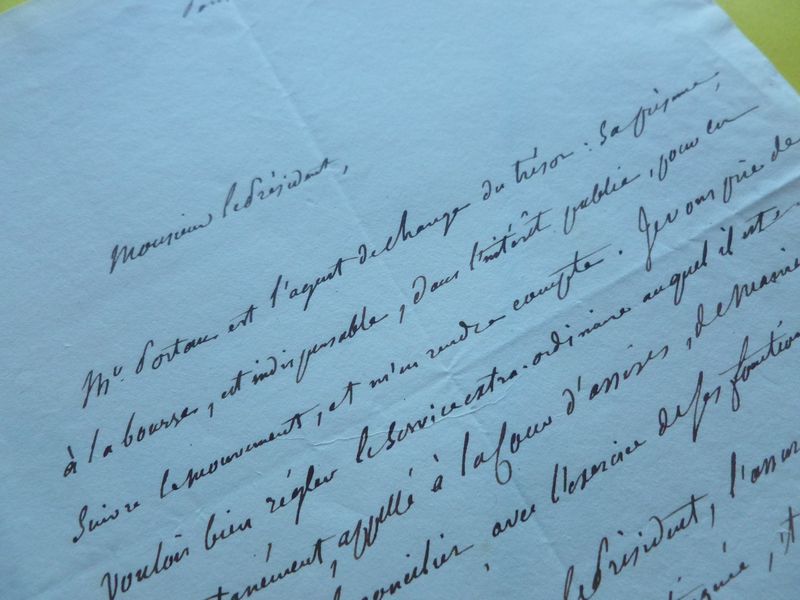 Monsieur le Président,
Mr. Portau est l'agent de change du trésor : sa présence,
à la bourse, est indispensable, dans l'intérêt public, pour en
suivre le mouvement, et m'en rendre compte. Je vous prie de
vouloir bien régler le service extra-ordinaire auquel il est
appellé à la Cour d'assises, de manière
concilier avec l'exercice de ses fonctions
le Président, l'assur